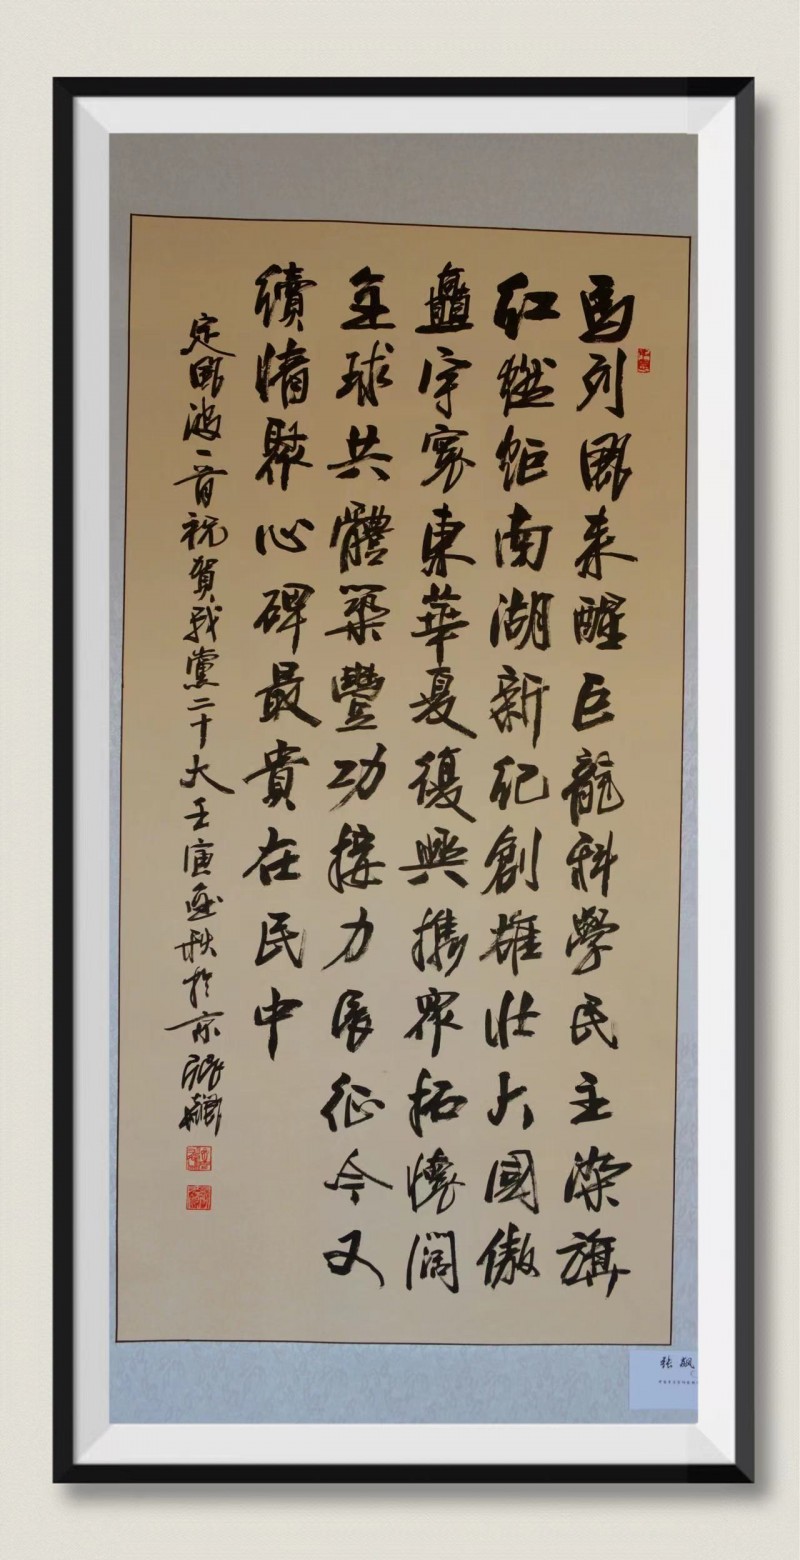 馬列風来醒巨龍科學民主染旗
紅縱炬南湖新紀創雄壯大國傲
矗宇寰東華夏復興攜眾拓懷闊
全球共體築豐功接力長征今又
續情聚心碑最貴在民中
定風波一首祝賀我黨二十大壬寅金秋於京張飆
张飙